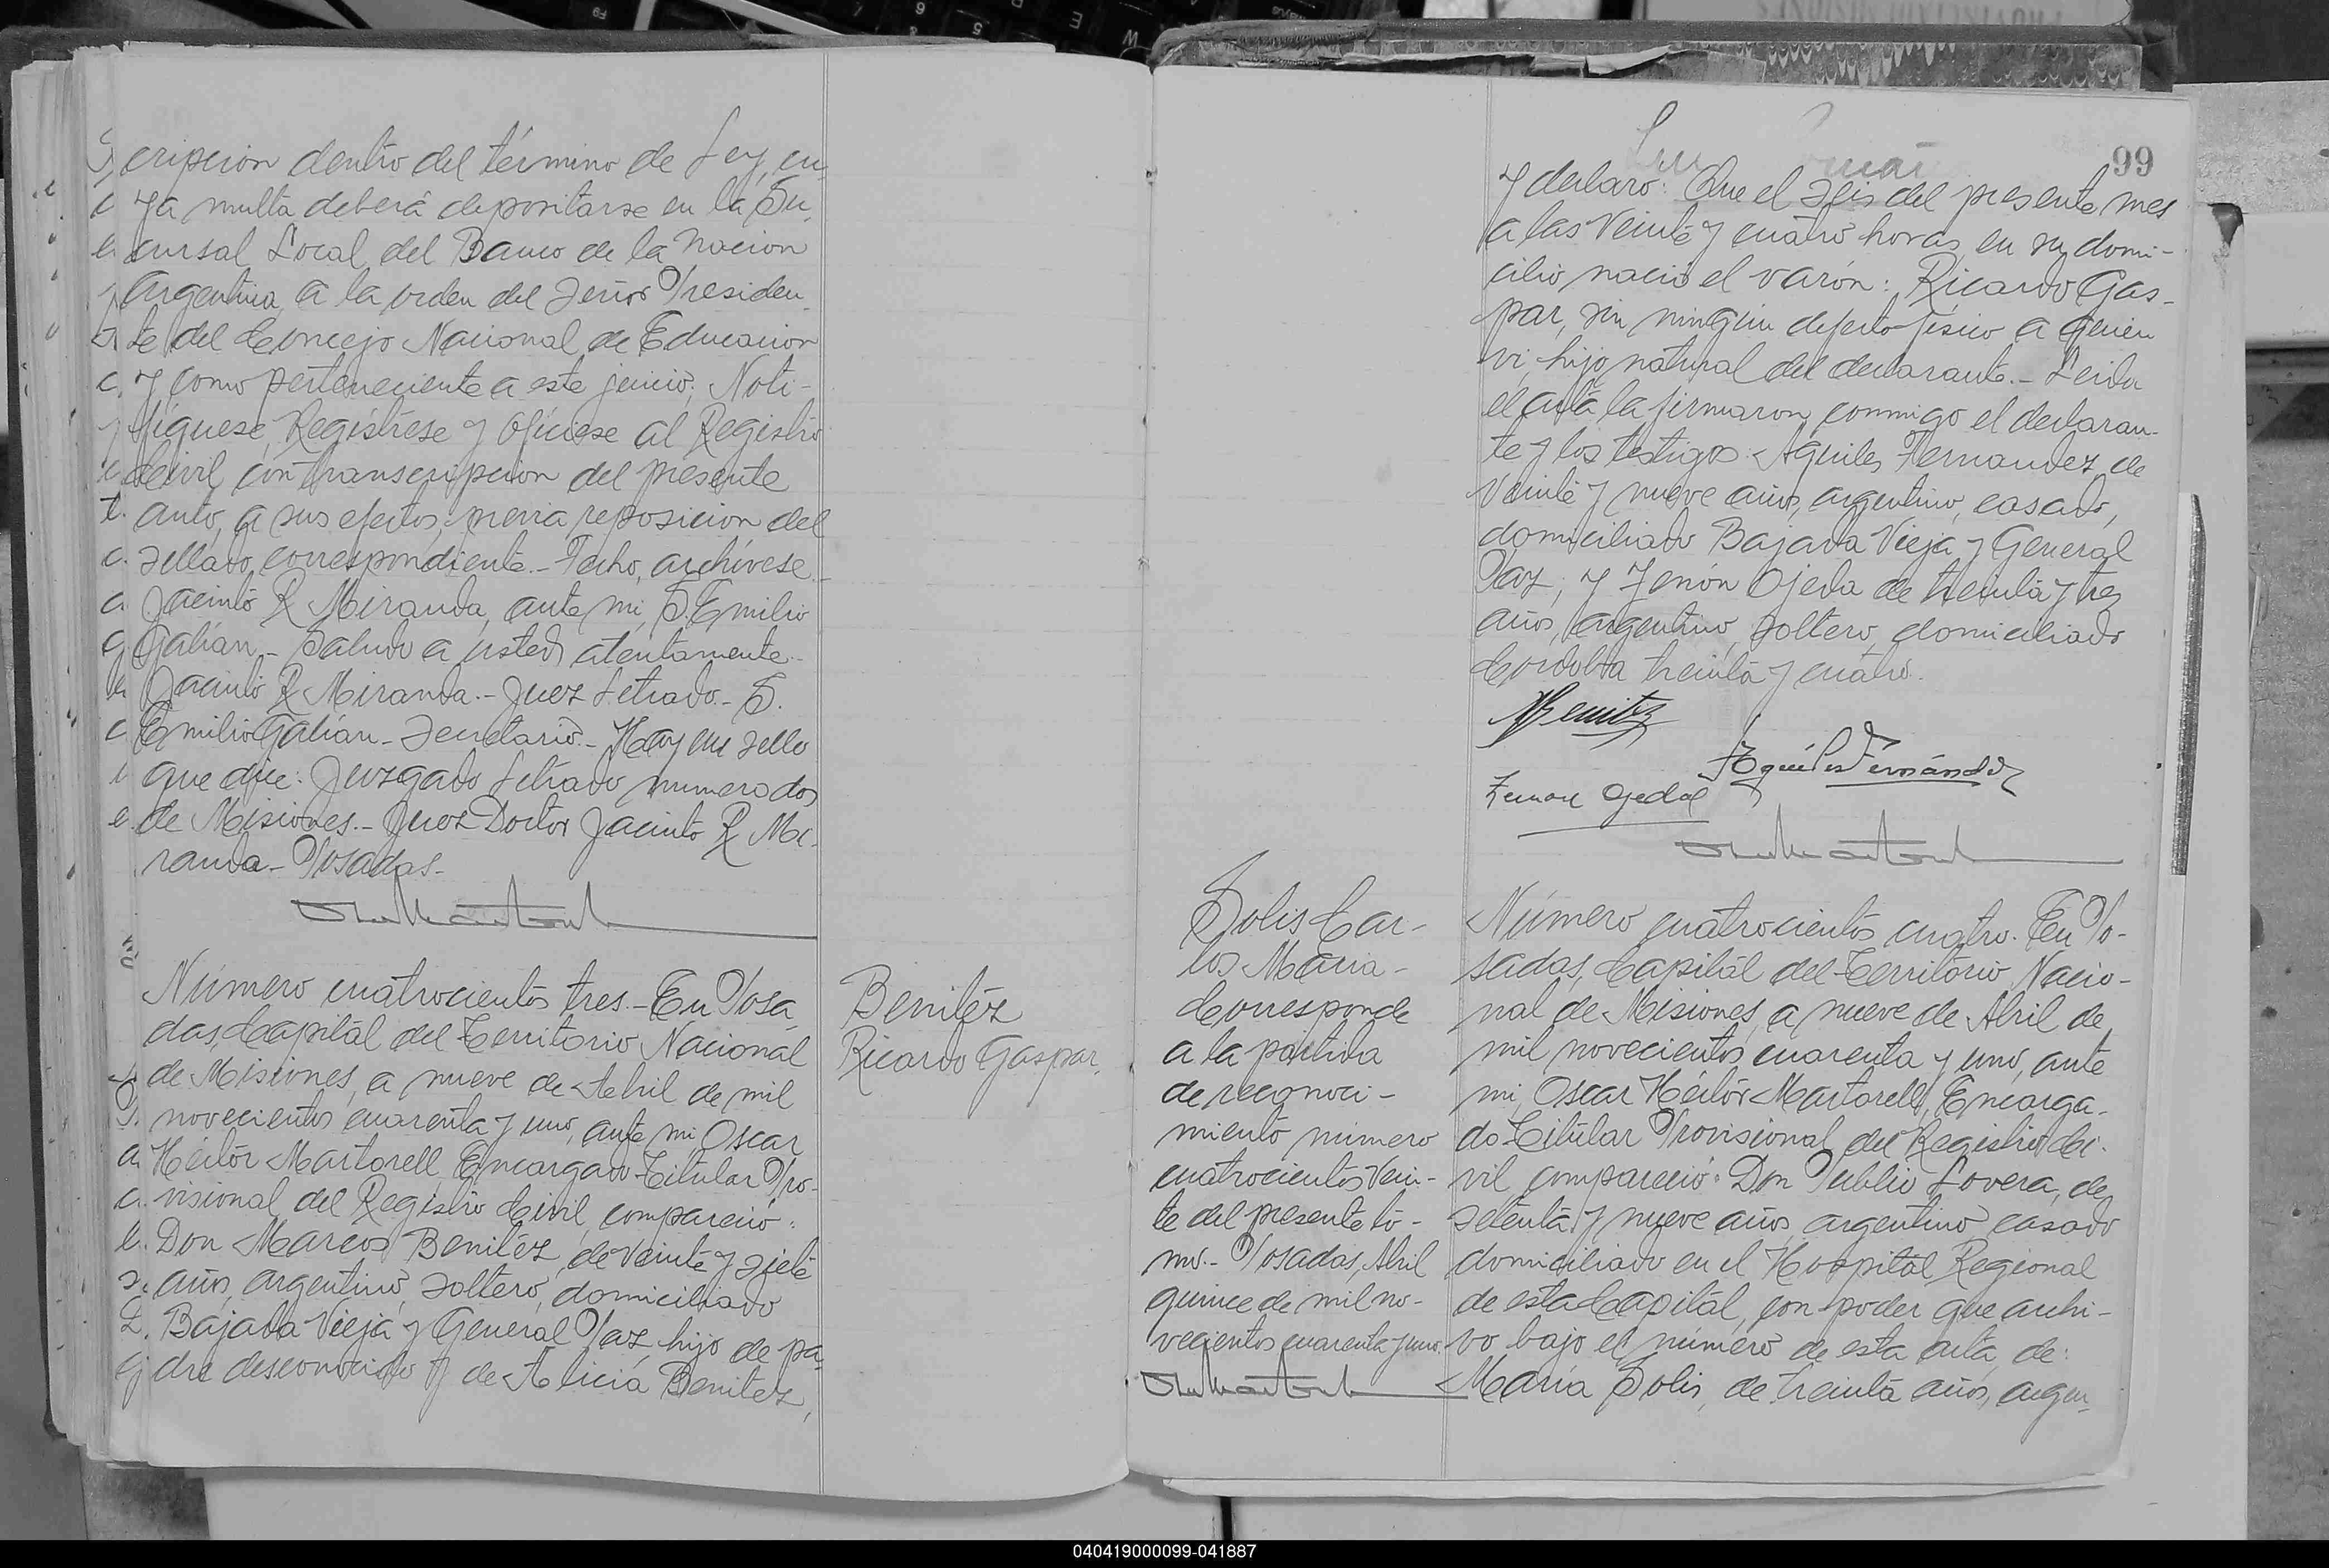 cripcion dentro del término de Ley, cu-
ya multa deberá depositarse en la Su-
cursal Local del Banco de la Nacion
Argentina a la orden del Señor Presiden-
te del Concejo Nacional de Educacion
y como perteneciente a este juicio, Noti-
fíquese, Regístrese y Ofíciese al Registro
Civil con transcripcion del presente
auto, a sus efectos, previa reposicion del
sellado correspondiente.- Fecho, archívese.-
Jacinto R Miranda, ante mi, S. Emilio
Galian.- Saludo a usted atentamente.-
Jacinto R Miranda.- Juez Letrado.- S.
Emilio Galian.- Secretario.- Hay un sello
que dice: Juzgado Letrado numero dos
de Misiones.- Juez Doctor Jacinto R Mi-
randa.- Posadas.-
Número cuatrocientos tres.- En Posa-
das, Capital del Territorio Nacional
de Misiones, a nueve de Abril de mil
novecientos cuarenta y uno, ante mi Oscar
Héctor Martorell, Encargado Titular Pro-
visional del Registro Civil, compareció:
Don Marcos Benitez, de veinte y siete
años, argentino, soltero, domiciliado
Bajada Vieja y General Paz, hijo de pa-
dre desconocido y de Alicia Benitez,
Benitéz
Ricardo Gaspar.
99
y declaró: Que el seis del presente mes
a las veinte y cuatro horas, en su domi-
cilio nació el varón: Ricardo Gas-
par, sin ningún defecto físico a quien
vi, hijo natural del declarante.- Leida
el acta la firmaron conmigo el declaran-
te y los testigos: Aquiles Fernandez, de
veinte y nueve años, argentino, casado,
domiciliado Bajada Vieja y General
Paz; y Zenón Ojeda de treinta y tres
años, argentino, soltero, domiciliado
Cordoba treinta y cuatro.
MBenitez
Aquiles Fernández
Zenon Ojeda
Solis Car-
los Maria-
Corresponde
a la partida
de reconoci-
miento número
cuatrocientos vein-
te del presente to-
mo.- Posadas, Abril
quince de mil no-
vecientos cuarenta y uno.
Número cuatrocientos cuatro. En Po-
sadas, Capital del Territorio Nacio-
nal de Misiones, a nueve de Abril de
mil novecientos cuarenta y uno, ante
mi, Oscar Héctor Martorell, Encarga-
do Titular Provisional del Registro Ci-
vil compareció: Don Publio Lovera, de
setenta y nueve años, argentino casado
domiciliado en el Hospital Regional
de esta Capital, con poder que archi-
vo bajo el número de esta acta, de:
María Solis, de treinta años, argen-
040419000099-041887